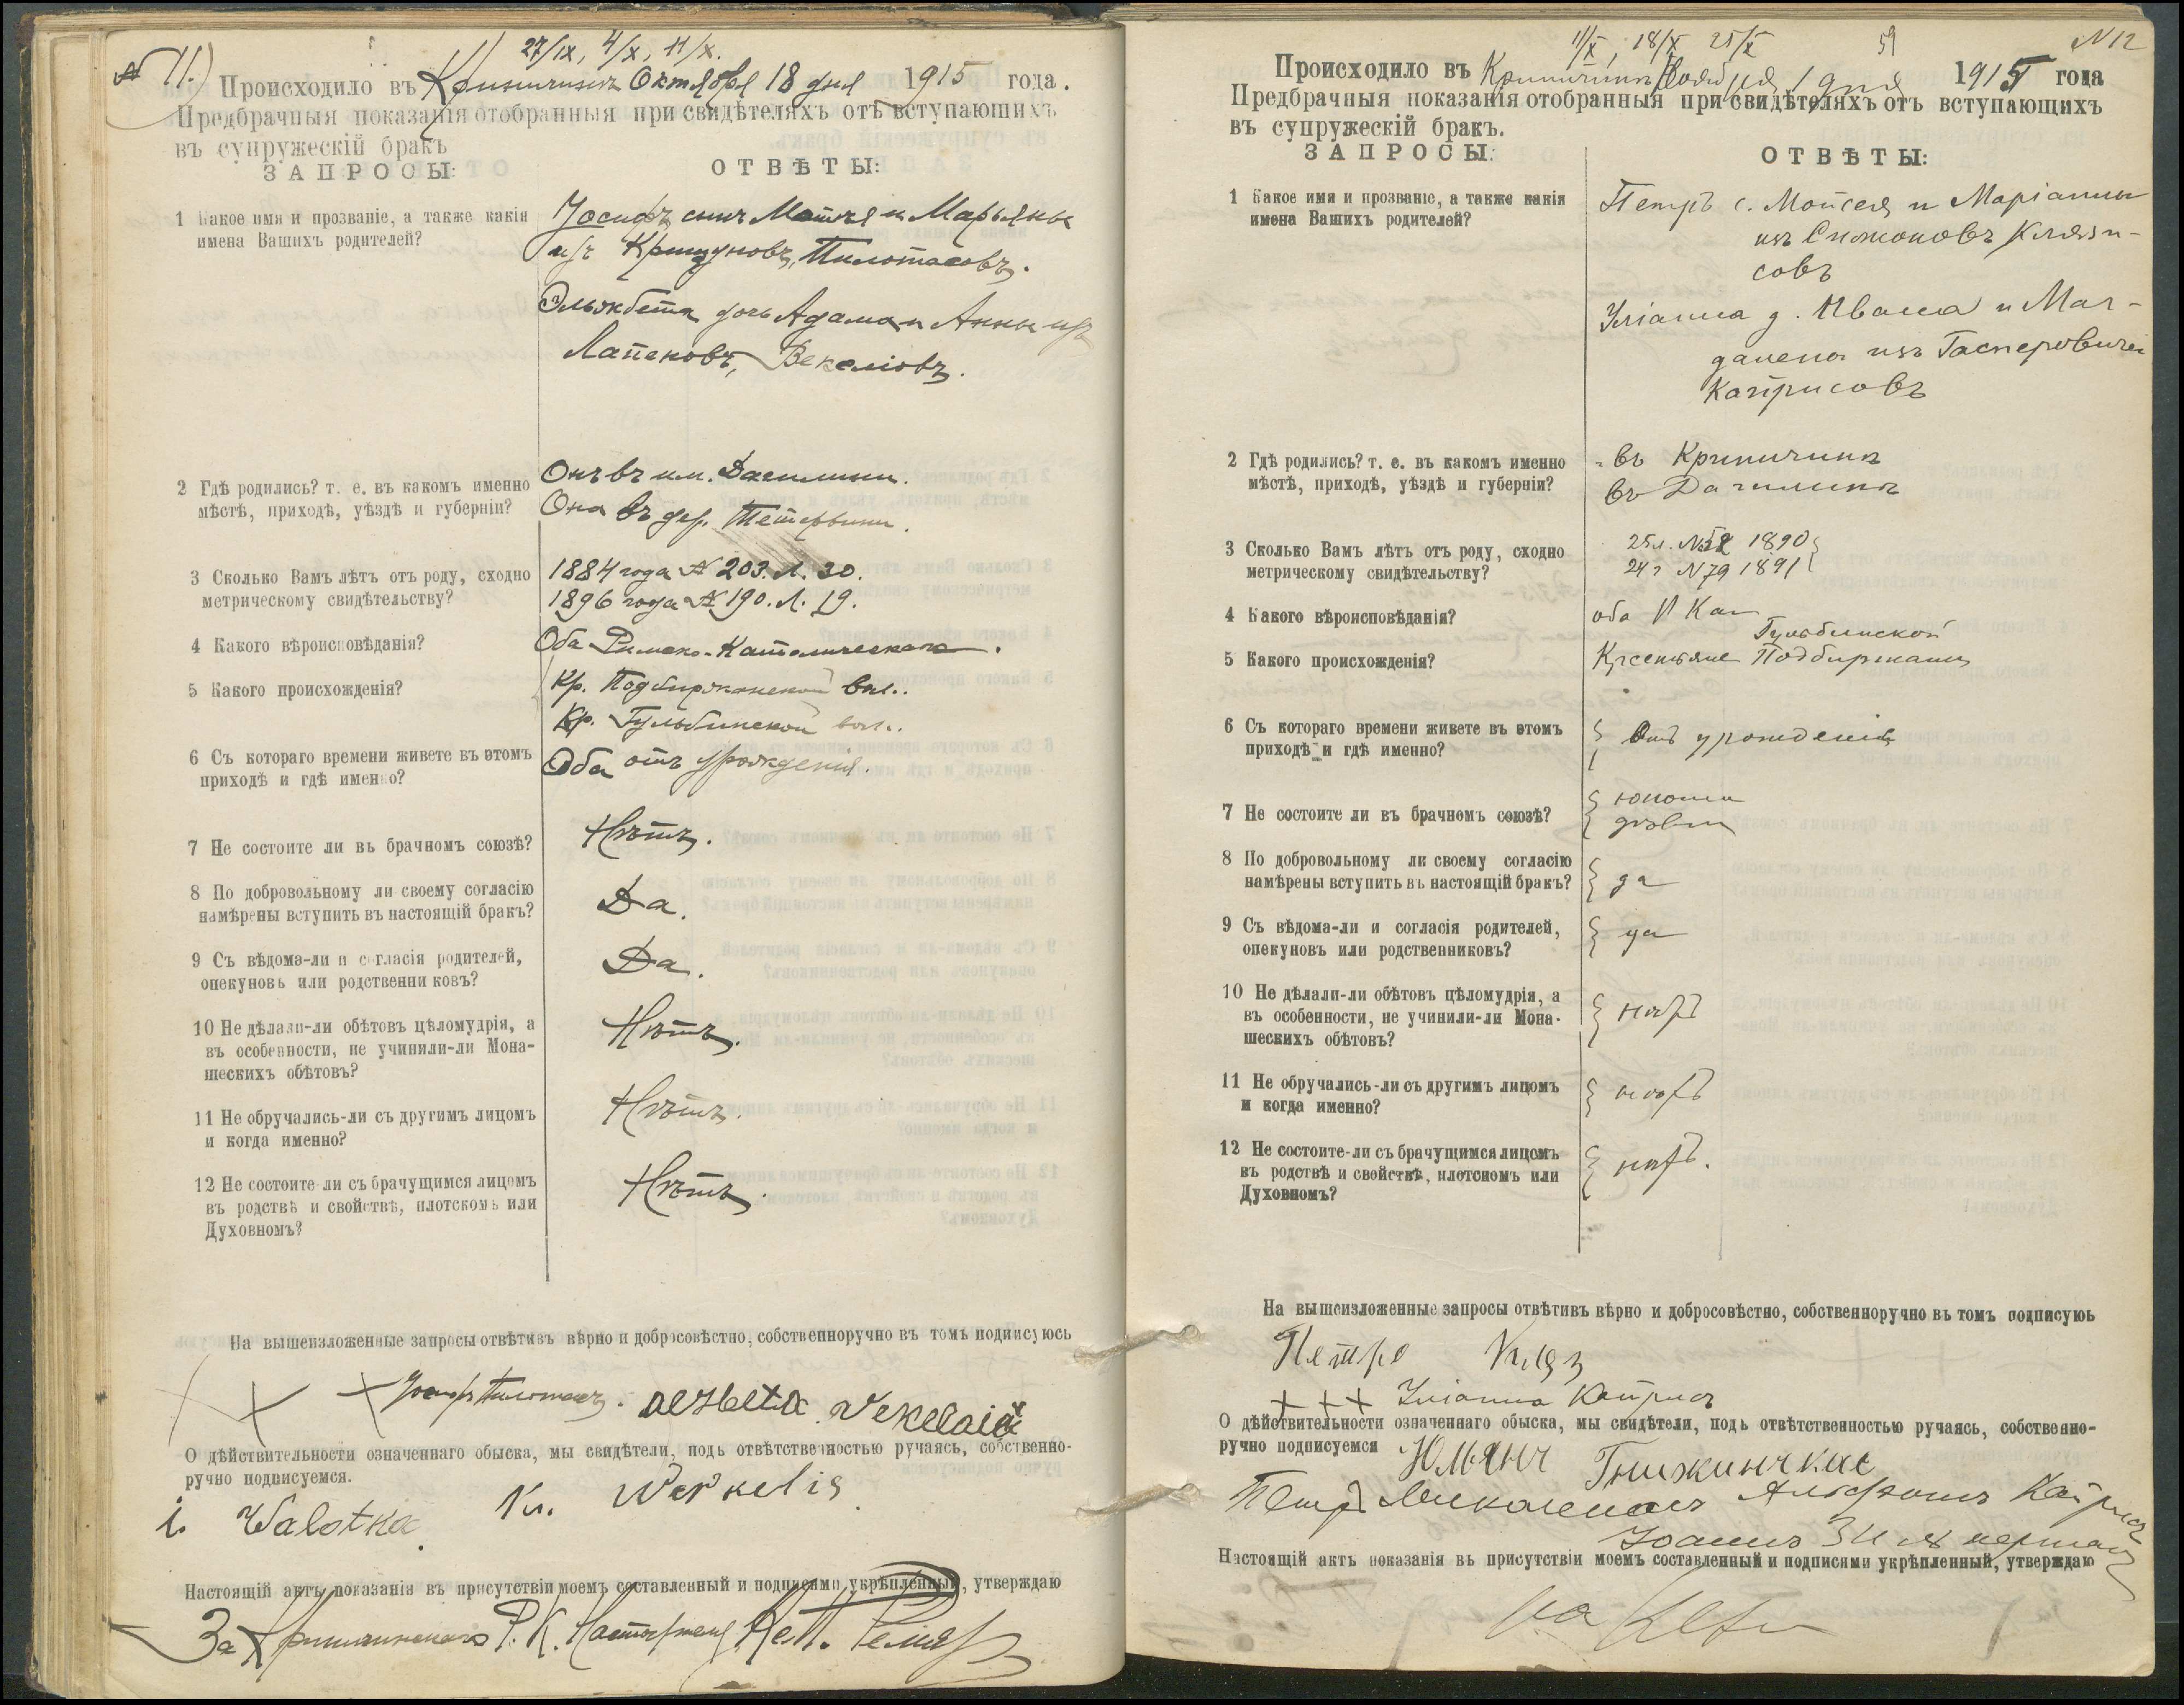 27/IX, 4/X, 11/X.
№ 11.) Происходило въ Криничинъ Октября 18 дня 1915 года.
Предбрачныя показанія отобранныя при свидѣтеляхъ отъ вступающихъ
въ супружескій бракъ
ЗАПРОСЫ: ОТВѢТЫ:
1 Какое имя и прозваніе, а также какія
имена Вашихъ родителей?
Іосифъ сынъ Матѣя и Марьяны
изъ Пилотасовъ.
Эльжбета дочь Адама и Анны изъ
Лапеновъ, Векеліовъ.
2 Гдѣ родились? т. е. въ какомъ именно
мѣстѣ, приходѣ, уѣздѣ и губерніи?
Онъ въ им.
Она въ дер.
3 Сколько Вамъ лѣтъ отъ роду, сходно
метрическому свидѣтельству?
1884 года № 203. Л. 30.
1896 года № 190. Л. 19.
4 Какого вѣроисповѣданія?
Оба Римско-Католическаго.
5 Какого происхожденія?
Кр. Подбиржанской вол..
Кр. Гульбинской вол..
6 Съ котораго времени живете въ этомъ
приходѣ и гдѣ именно?
Оба отъ урожденія.
7 Не состоите ли вь брачномъ союзѣ?
Нѣтъ.
8 По добровольному ли своему согласію
намѣрены вступить въ настоящій бракъ?
Да.
9 Съ вѣдома-ли и согласія родителей,
опекуновь или родственни ковъ?
Да.
10 Не дѣлали-ли обѣтовъ цѣломудрія, а
въ особенности, не учинили-ли Мона-
шескихъ обѣтовъ?
Нѣтъ.
11 Не обручались-ли съ другимъ лицомъ
и когда именно?
Нѣтъ.
12 Не состоите-ли съ брачущимся лицомъ
въ родствѣ и свойствѣ, плотскомь или
Духовномъ?
Нѣтъ.
На вышеизложенные запросы отвѣтивъ вѣрно и добросовѣстно, собственноручно въ томъ подписуюсь
Іосифъ Пилотасъ.
О дѣйствительности означеннаго обыска, мы свидѣтели, подь отвѣтственностью ручаясь, собственно-
ручно подписуемся.
i. Walotka. Kn. Werkelis
Настоящій актъ показанія въ присутствіи моемъ составленный и подписями укрѣпленный, утверждаю
За Р. К.
11/X, 18/X, 25/X 59 N 12
Происходило въ Криничинъ Ноября 1 дня 1915 года
Предбрачныя показанія отобранныя при свидѣтеляхъ отъ вступающихъ
въ супружескій бракъ.
ЗАПРОСЫ: ОТВѢТЫ:
1 Какое имя и прозваніе, а также какія
имена Вашихъ родителей?
Петръ с. Мойсея и Маріанны
изъ Симоновъ Клязи-
совъ
Уліанна д. Ивана и Маг-
далена изъ Гасперовичей
Кайрисовъ
2 Гдѣ родились? т. е. въ какомъ именно
мѣстѣ, приходѣ, уѣздѣ и губерніи?
въ Криничинъ
въ Дагилинъ
3 Сколько Вамъ лѣтъ отъ роду, сходно
метрическому свидѣтельству?
25 л. 1890
24 г N 79 1891
4 Какого вѣроисповѣданія?
оба
5 Какого происхожденія?
Гульбинской
Крестьяне
6 Съ котораго времени живете въ этомъ
приходѣ и гдѣ именно?
Отъ урожденія
7 Не состоите ли въ брачномъ союзѣ?
юноша
дѣвица
8 По добровольному ли своему согласію
намѣрены вступить вь настоящій бракъ?
да
9 Съ вѣдома-ли и согласія родителей,
опекуновъ или родственниковъ?
да
10 Не дѣлали-ли обѣтовъ цѣломудрія, а
въ особенности, не учинили-ли Мона-
шескихъ обѣтовъ?
нѣтъ
11 Не обручались-ли съ другимъ лицомъ
и когда именно?
нѣтъ
12 Не состоите-ли съ брачущимся лицомъ
въ родствѣ и свойствѣ, плотсномъ или
Духовномъ?
нѣтъ.
На вышеизложенные запросы отвѣтивъ вѣрно и добросовѣстно, собственноручно вь томъ подписуюь
Петро
Уліанна Кайрисъ
О дѣйствительности означеннаго обыска, мы свидѣтели, подь отвѣтственностью ручаясь, собственно-
ручно подписуемся
Юльянъ
Петръ Альфонсъ Кайрисъ
Іоаннъ
Настоящій актъ показанія въ присутствіи моемъ составленный и подписями укрѣпленный, утверждаю